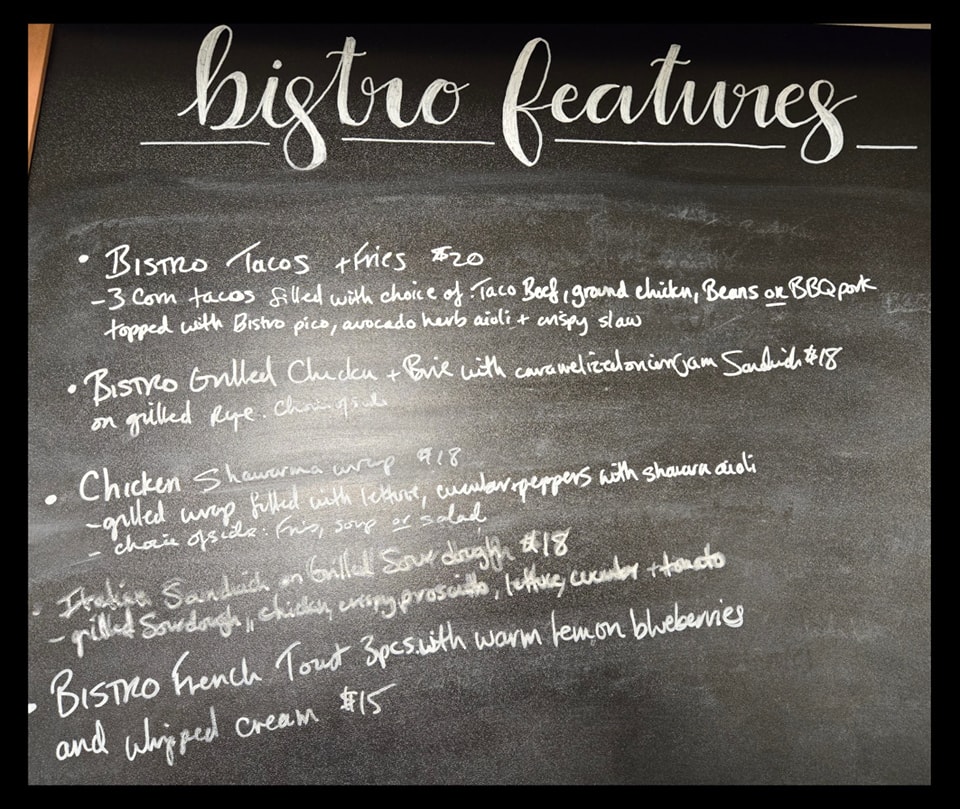 bistro features
• BISTRO Tacos + Fries $20
- 3 Corn tacos filled with choice of: Taco Beef, ground chickn, Beans or BBQ pork
topped with Bistro pico, avocado herb aioli + crispy slaw
• BISTRO Grilled Chicken + Brie with caramelized onion jam Sandwich $18
on grilled Rye. Choice of side
• Chicken Shawarma wrap $18
- grilled wrap filled with lettuce, cucumber, peppers with shawara aioli
- choice of side: Fries, soup or salad
• Italian Sandwich on Grilled Sourdough $18
- grilled Sourdough, chicken, crispy prosciutto, lettuce, cucumber + tomato
• BISTRO French Toast 3pcs. with warm lemon blueberries
and whipped cream $15